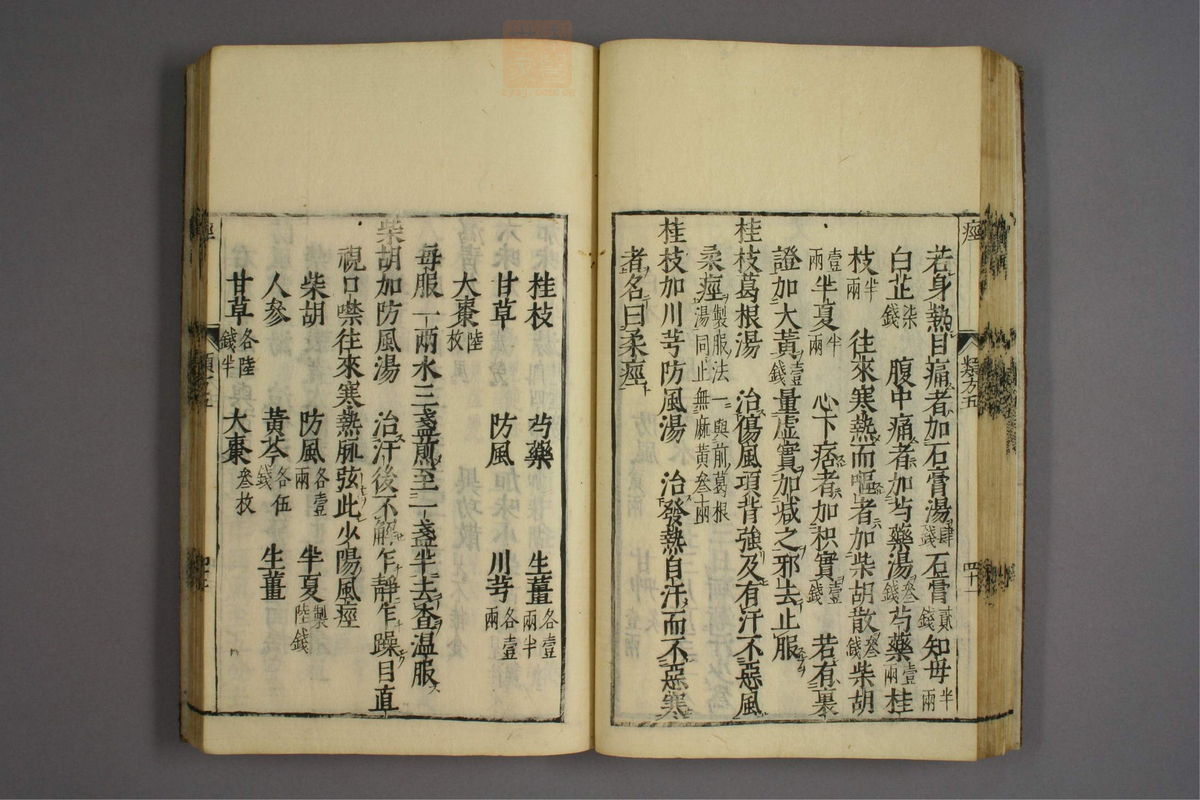 痙
類方五
四十一
若身熱目痛者加石膏湯肆錢石膏貳錢知母半兩
白芷柒錢 腹中痛者加芍藥湯叁錢芍藥壹兩桂
枝半兩 往來寒熱而嘔者加柴胡散叁錢柴胡
壹兩半夏半兩 心下痞者加枳實壹錢 若有裏
證加大黃壹錢量虛實加減之邪去止服
桂枝葛根湯 治傷風項背強及有汗不惡風
柔痙製服法一與前葛根湯同止無麻黃叁兩
桂枝加川芎防風湯 治發熱自汗而不惡寒
者名曰柔痙
桂枝 芍藥 生薑各壹兩半
甘草 防風 川芎各壹兩
大棗陸枚
每服一兩水三盞煎至一盞半去查温服
柴胡加防風湯 治汗後不解乍靜乍躁目直
視口噤往來寒熱脉弦此少陽風痙
柴胡 防風各壹兩 半夏製陸錢
人參 黃芩各伍錢 生薑
甘草各陸錢半 大棗叁枚
痙
類方五